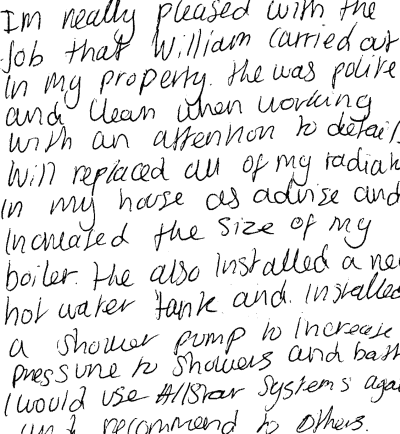 Im really pleased with the
job that William carried out
in my property. He was polite
and clean when working
with an attention to detail.
Will replaced all of my radiat
in my house as advise and
increased the size of my
boiler. He also installed a ne
hot water tank and. Installed
a shower pump to increase
pressure to showers and bath
I would use Allstar Systems aga
and recommend to others.